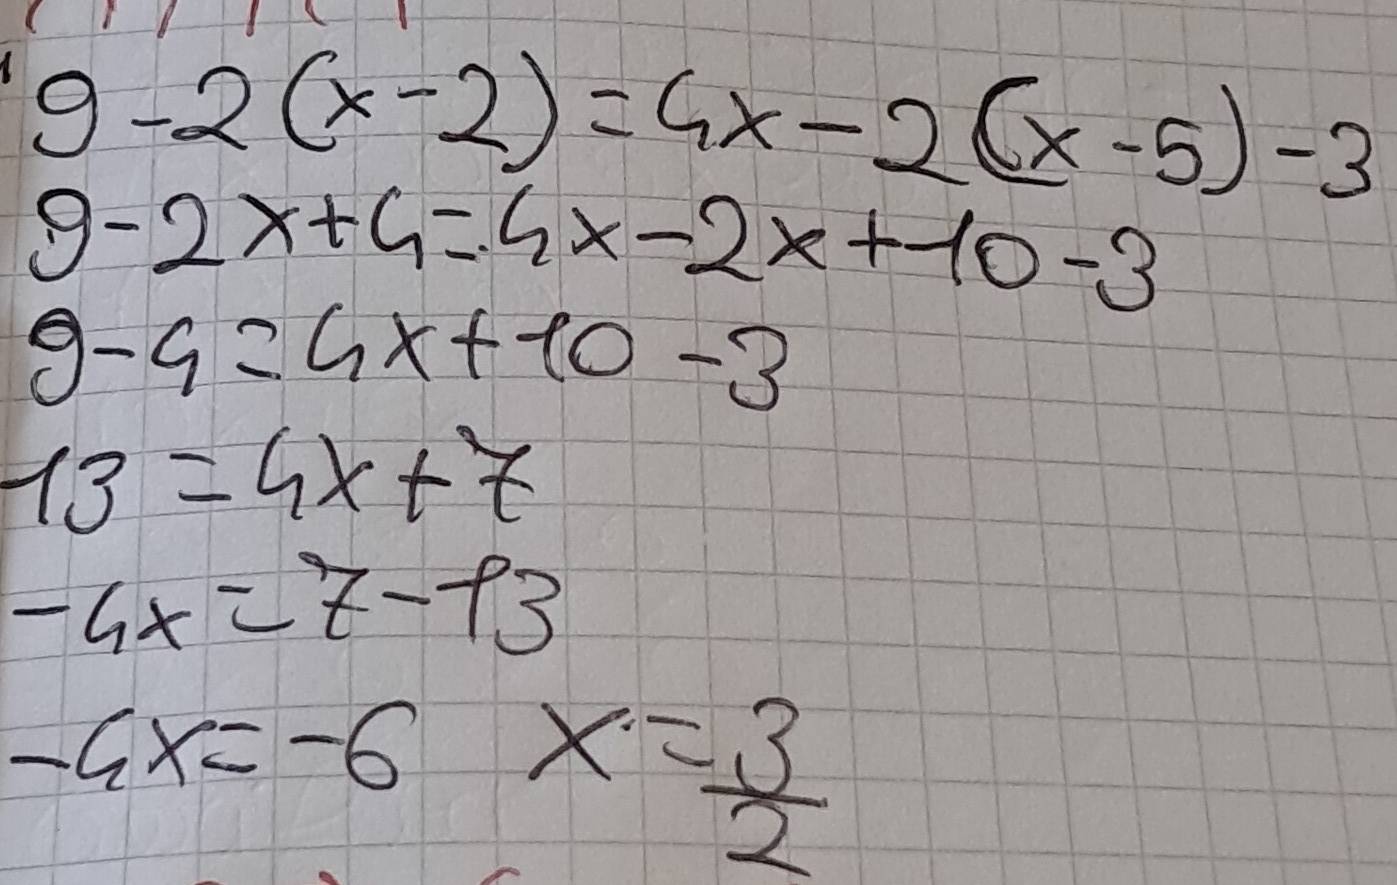 9-2(x-2)=4x-2(x-5)-3
9-2x+4=4x-2x+10-3
9-4=4x+10-3
13=4x+7
-4x=7-13
-4x=-6 x=3/2